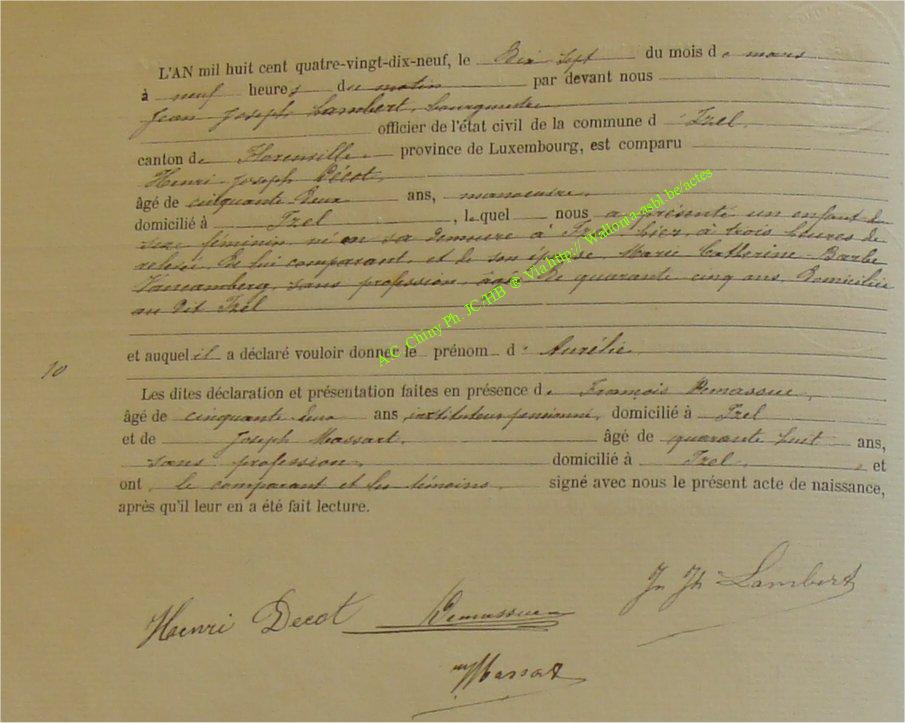 L'AN mil huit cent quatre-vingt-dix-neuf, le Dix sept du mois de mars
à neuf heures du matin par devant nous
Jean Joseph Lambert, bourgmestre
officier de l'état civil de la commune d'Izel
canton de Florenville province de Luxembourg, est comparu
Henri Joseph Décot,
âgé de cinquante Deux ans, manoeuvre,
domicilié à Izel, lequel nous a présenté un enfant du
sexe féminin né en sa demeure à Izel hier, à trois heures de
relevée, De lui comparant, et de son épouse, Marie Catherine Barbe
sans profession âgée de quarante cinq ans, Domiciliée
au Dit Izel
et auquel il a déclaré vouloir donner le prénom d'Aurélie
10
Les dites déclaration et présentation faites en présence de François Demassue,
âgé de cinquante deux ans, instituteur pensionné, domicilié à Izel
et de Joseph Massart, âgé de quarante huit ans,
sans profession, domicilié à Izel, et
ont le comparant et les témoins, signé avec nous le présent acte de naissance,
après qu'il leur en a été fait lecture.
Henri Decot Demassue Jn Jh Lambert
Massart
A.C. Chiny Ph. JC/HB @ Via http://Wallonia-asbl.be/actes